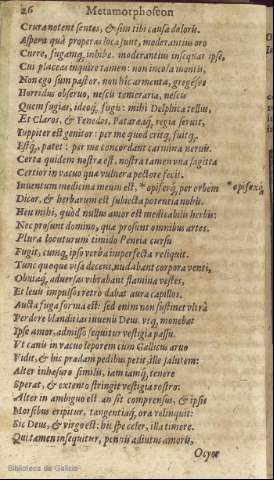 26 Metamorphoseon
Crura notent sentes, & sim tibi causa doloris.
Aspera quà properas loca sunt, moderantius oro
Curre, fugamq́; inhibe. moderantius insequar ipse,
Cui placeas inquire tamen: non incola montis,
Non ego sum pastor. non hic armenta, gregésve
Horridus observo, nescis temeraria, nescis
Quem fugias, ideoq́; fugis: mihi Delphica tellus,
Et Claros, & Tenedos, Pataraeaq́; regia servit,
Iuppiter est genitor: per me quod eritq́;, fuitq́;,
Estq́;, patet: per me concordant carmina nervis.
Certa quidem nostra est, nostra tamen una sagitta
Certior in vacuo qua vulnera pectore fecit.
Inventum medicina meum est, * opiferq́; per orbem * opifexq́;
Dicor, & herbarum est subiecta potentia nobis.
Heu mihi, quòd nullus amor est medicabilis herbis:
Nec prosunt domino, qua prosunt omnibus artes.
Plura locuturum timido Peneia cursu
Fugit, cumq́; ipso verba imperfecta reliquit.
Tunc quoque visa decens, nudabant corpora venti,
Obviaq́; adversas vibrabant flamina vestes,
Et levis impulsos retrò dabat aura capillos.
Aucta fuga forma est: sed enim non sustinet vltrà
Perdere blanditias iuvenis Deus. vtq́; monebat
Ipse amor, admisso sequitur vestigia passu.
Vt canis in vacuo leporem cùm Gallicus arvo
Vidit, & hic praedam pedibus petit, ille salutem:
Alter inhaesuro similis, iam iamq́; tenere
Sperat, & extento stringit vestigia rostro:
Alter in ambiguo est an sit comprensus, & ipsis
Morsibus eripitur, tangentiaq́; ora relinquit:
Sic Deus, & virgo est: hic spe celer, illa timore.
Qui tamen insequitur, pennis adiutus amoris,
Ocyor
Biblioteca de Galicia